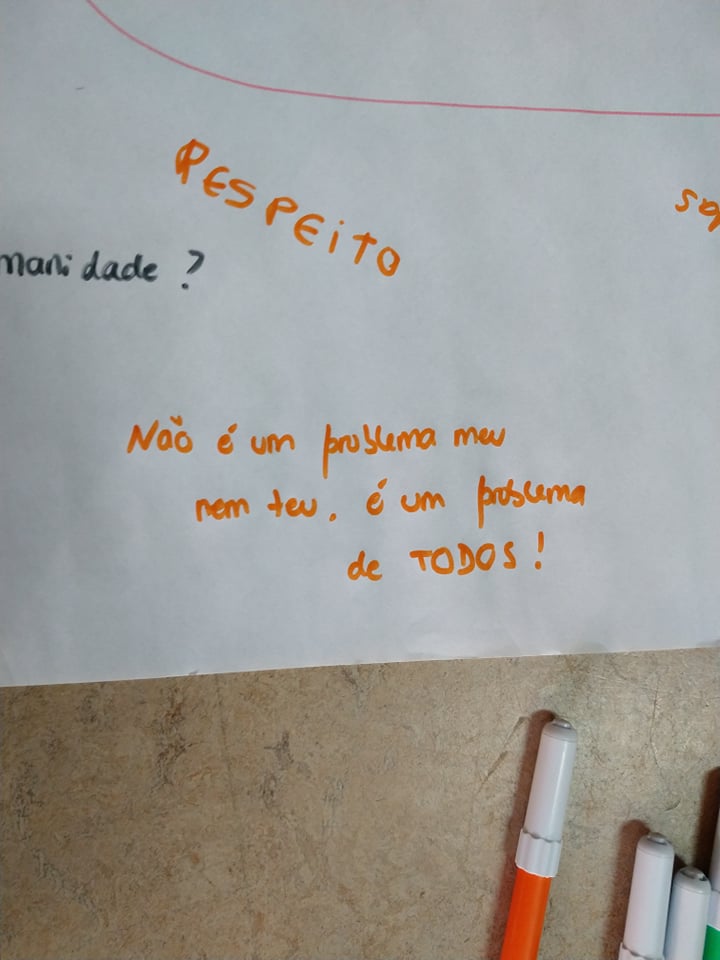 RESPEITO
manidade ?
Não é um problema meu
nem teu. é um problema
de TODOS!